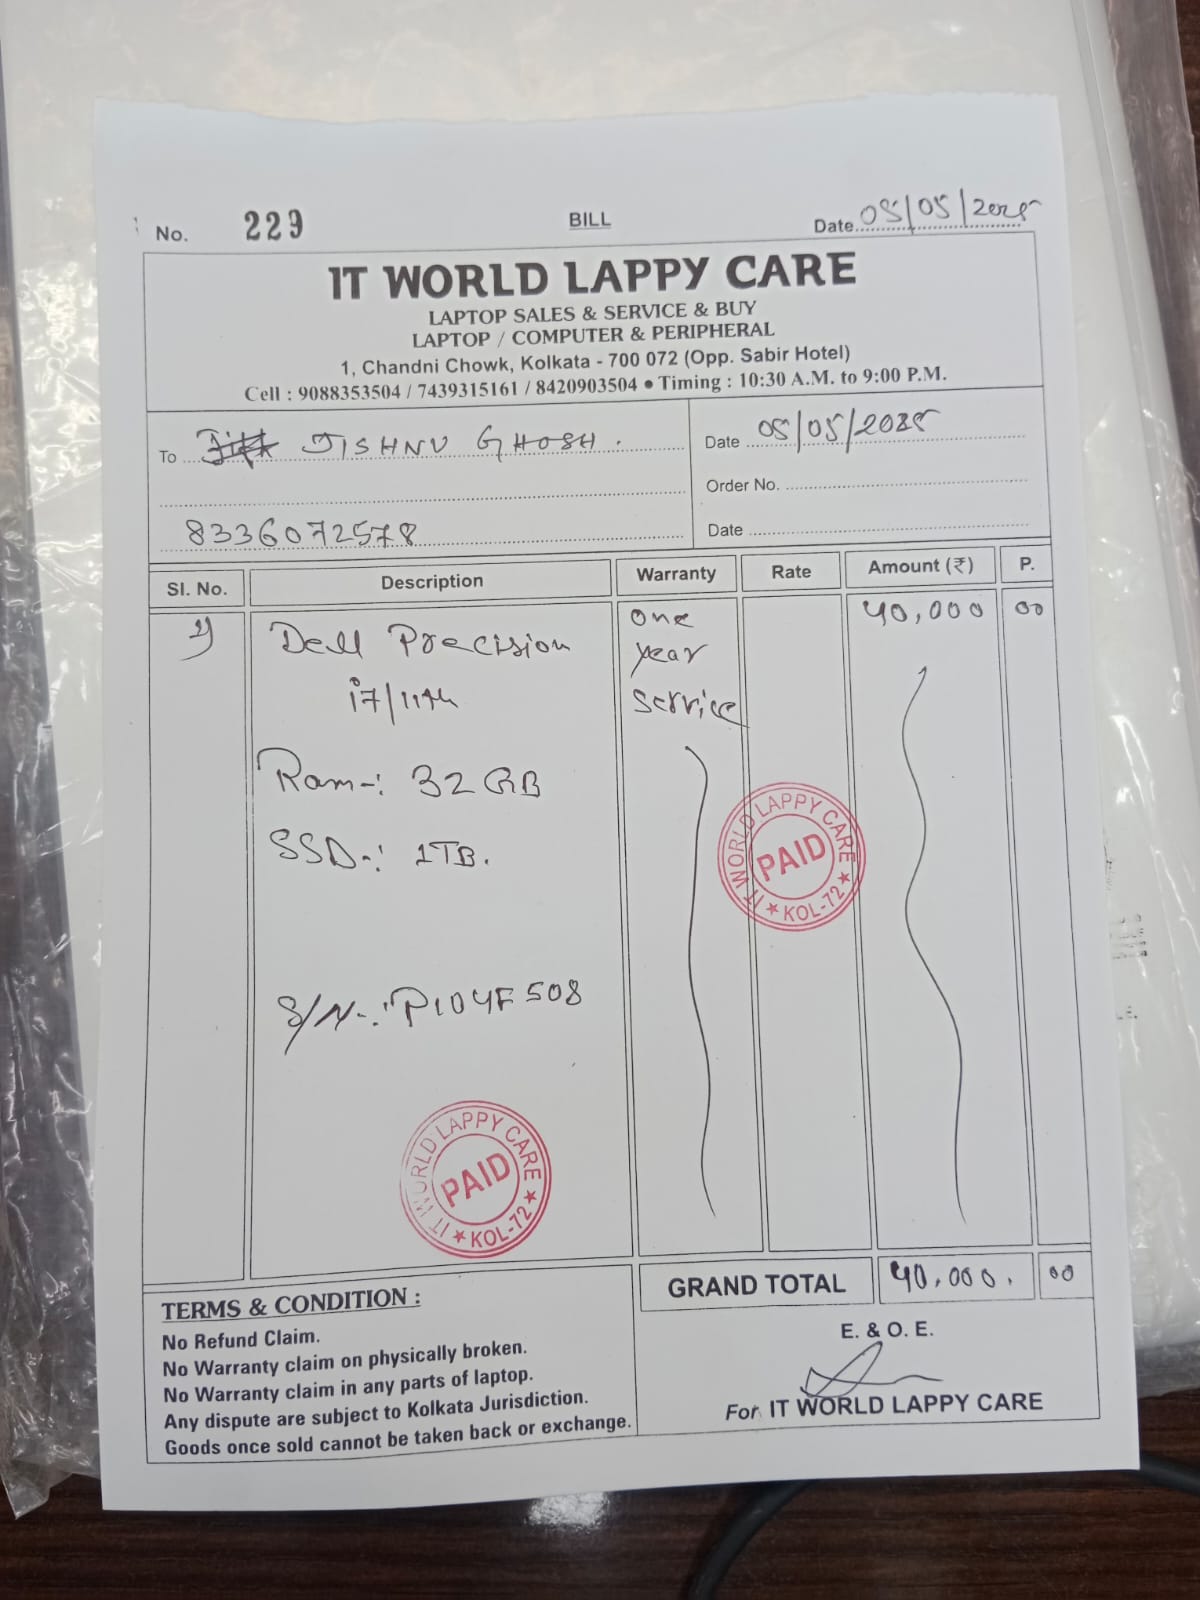 No. 229
BILL
Date 05/05/2025
IT WORLD LAPPY CARE
LAPTOP SALES & SERVICE & BUY
LAPTOP / COMPUTER & PERIPHERAL
1, Chandni Chowk, Kolkata - 700 072 (Opp. Sabir Hotel)
Cell : 9088353504 / 7439315161 / 8420903504 ● Timing : 10:30 A.M. to 9:00 P.M.
To JISHNU GHOSH.
8336072578
Date 05/05/2025
Order No.
Date
Sl. No. Description Warranty Rate Amount (₹) P.
1) Dell Precision One 40,000 00
i7/11th year
service
Ram-: 32 GB
SSD-: 1TB.
S/N-: P104F508
IT WORLD LAPPY CARE
PAID
★ KOL-72 ★
IT WORLD LAPPY CARE
PAID
★ KOL-72 ★
GRAND TOTAL 40,000. 00
TERMS & CONDITION :
No Refund Claim.
No Warranty claim on physically broken.
No Warranty claim in any parts of laptop.
Any dispute are subject to Kolkata Jurisdiction.
Goods once sold cannot be taken back or exchange.
E. & O. E.
For IT WORLD LAPPY CARE